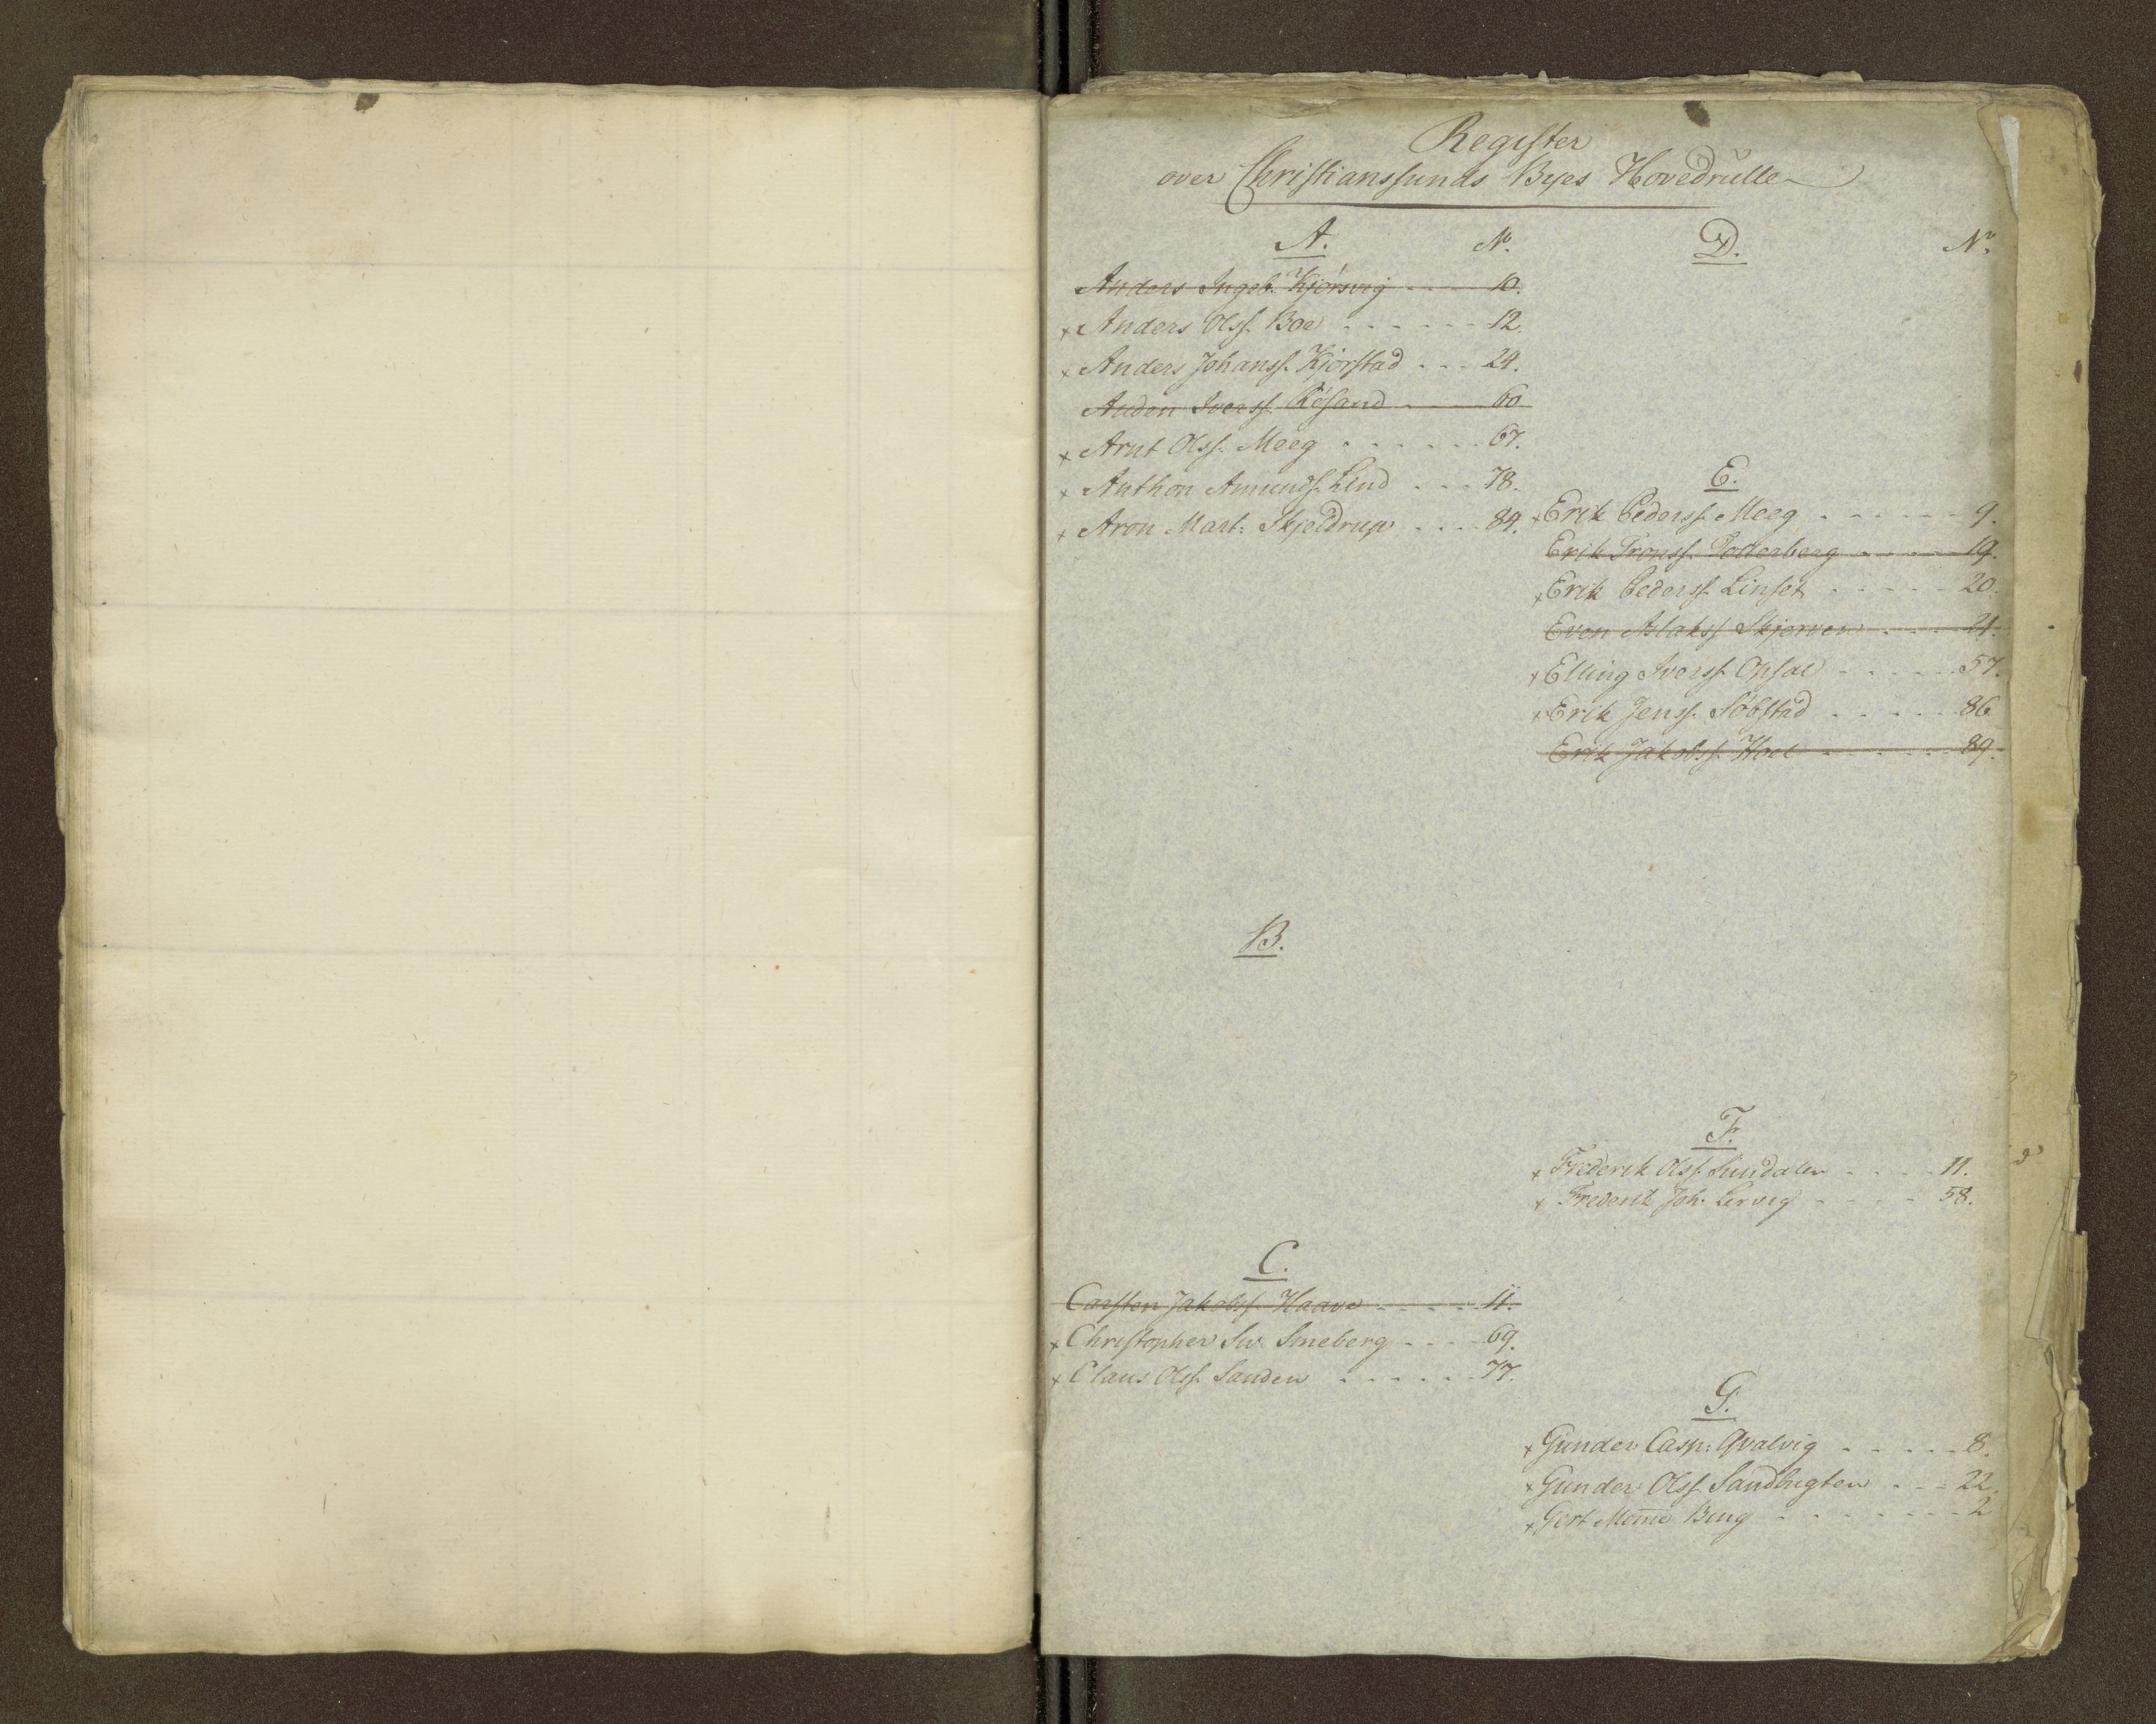 Register
over Christianssunds Byes Hovedrulle
A. No.
Anders Ingeb. Kjørsvig - - - 10.
x Anders Olss. Boe - - - - - - 12.
x Anders Johanss. Kjørstad - - - 24.
Auden Iverss. Røsand - - - 60
x Arnt Olss. Meeg - - - - - - 67.
x Anthon Amunds. Lind - - - 78.
x Aron Mart: Skjeldrup - - - - 84.
B.
C.
Carsten Jakobss. Haave - - - - - 11.
x Christopher Sw. Smeberg - - - - 69.
x Claus Olss. Sanden - - - - - - 77.
D. No.
E.
x Erik Pederss. Meeg - - - - - - 9.
Erik Tronss. Foderberg - - - - 19.
x Erik Pederss. Linset - - - - - 20.
Even Aslakss. Skjerven - - - 21.
x Elling Iverss. Opsal - - - - - 57.
x Erik Jenss. Søbstad - - - - - 86
Erik Jakobss. Hoel - - - - - - 89.
F.
x Frederik Olss. Sundalen - - - - 11.
x Frederik Joh. Lervig - - - - - 58.
G.
x Gunder Casp: Qvalvig - - - - - 8.
x Gunder Olss. Sandbugten - - - 22.
x Gert Mome Bing - - - - - - - - 2